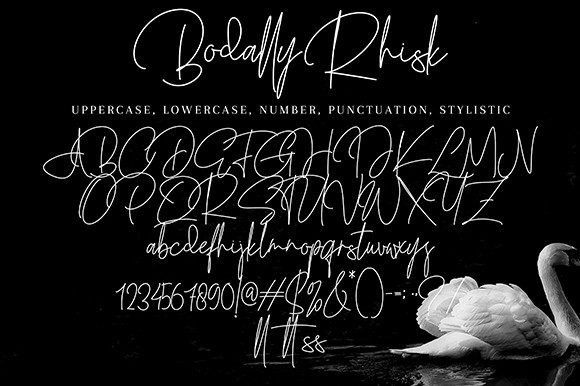 Bodally Rhisk
UPPERCASE, LOWERCASE, NUMBER, PUNCTUATION, STYLISTIC
ABCDEFGHIJKLMN
OPQRSTUVWXYZ
abcdefghijklmnopqrstuvwxyz
1234567890!@#$%&*()-=;:,.?
ll tt ss